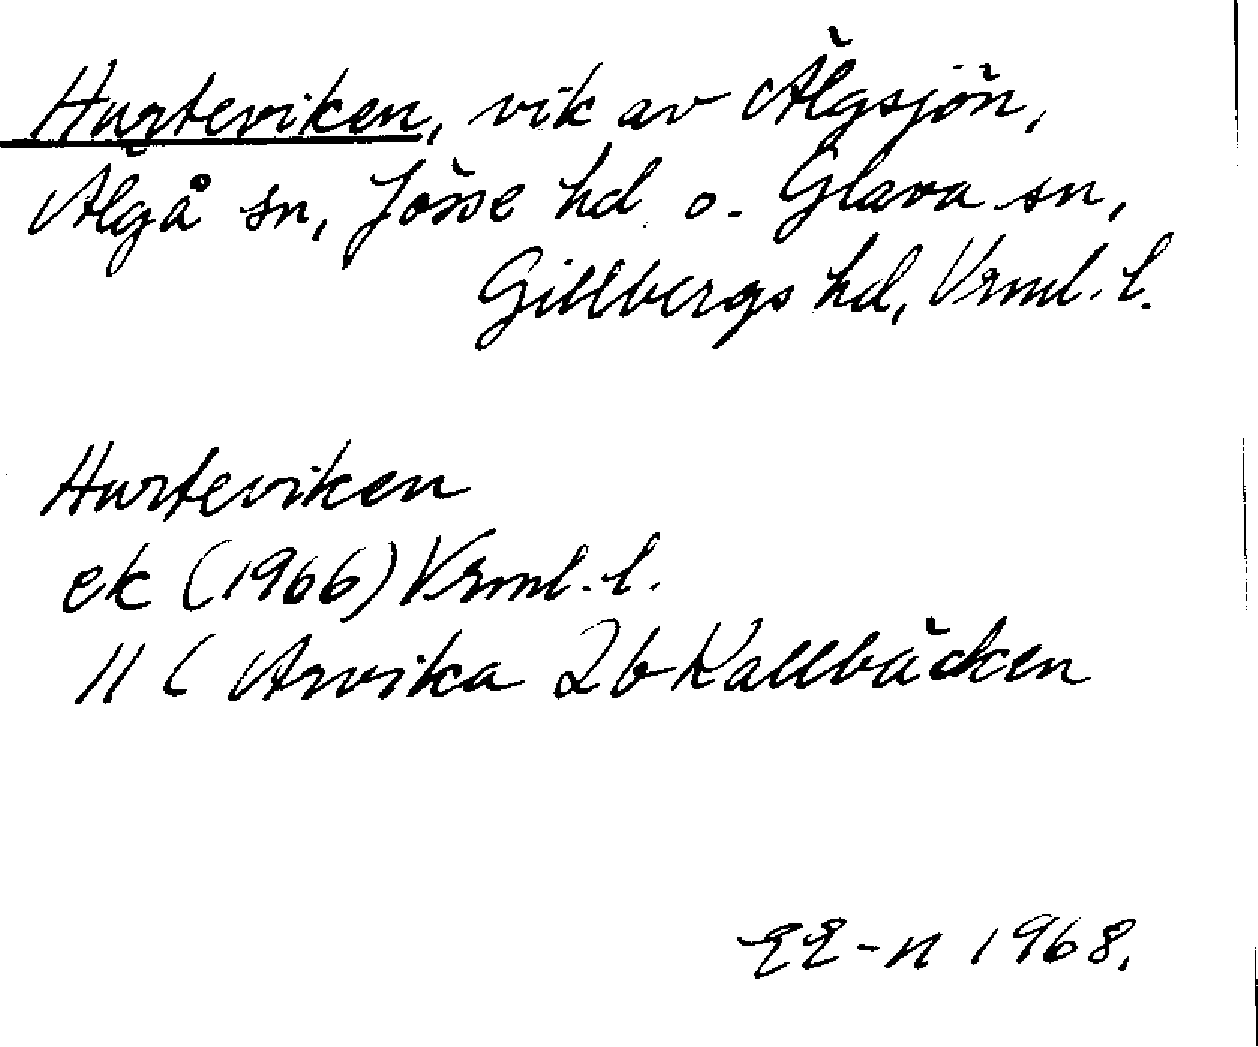 Hurteviken, vik av Älgsjön,
Älgå sn, Jösse hd o. Glava sn,
Gillbergs hd, Vrml. l.
Hurteviken
ek (1966) Vrml. l.
11 C Arvika 2b Kallbäcken
EE-n 1968.